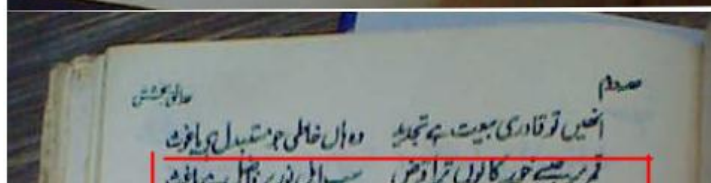 حصہ دوم
حدائق بخشش
انھیں تو قادری بیعت ہے تجدید وہ ہاں خاطی جو مستبدل ہے یاغوث
قمر پر جیسے خور کا یوں ترا قرض